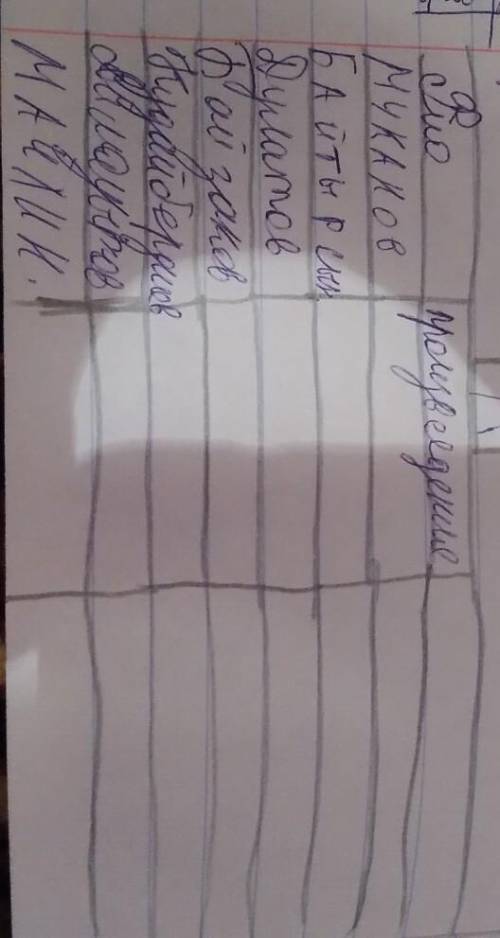 Фио произведение
МУКАНОВ
БАЙТЫРСЫН
Дулатов
Байзаков
Кудайбердиев
МАЙЛИН.